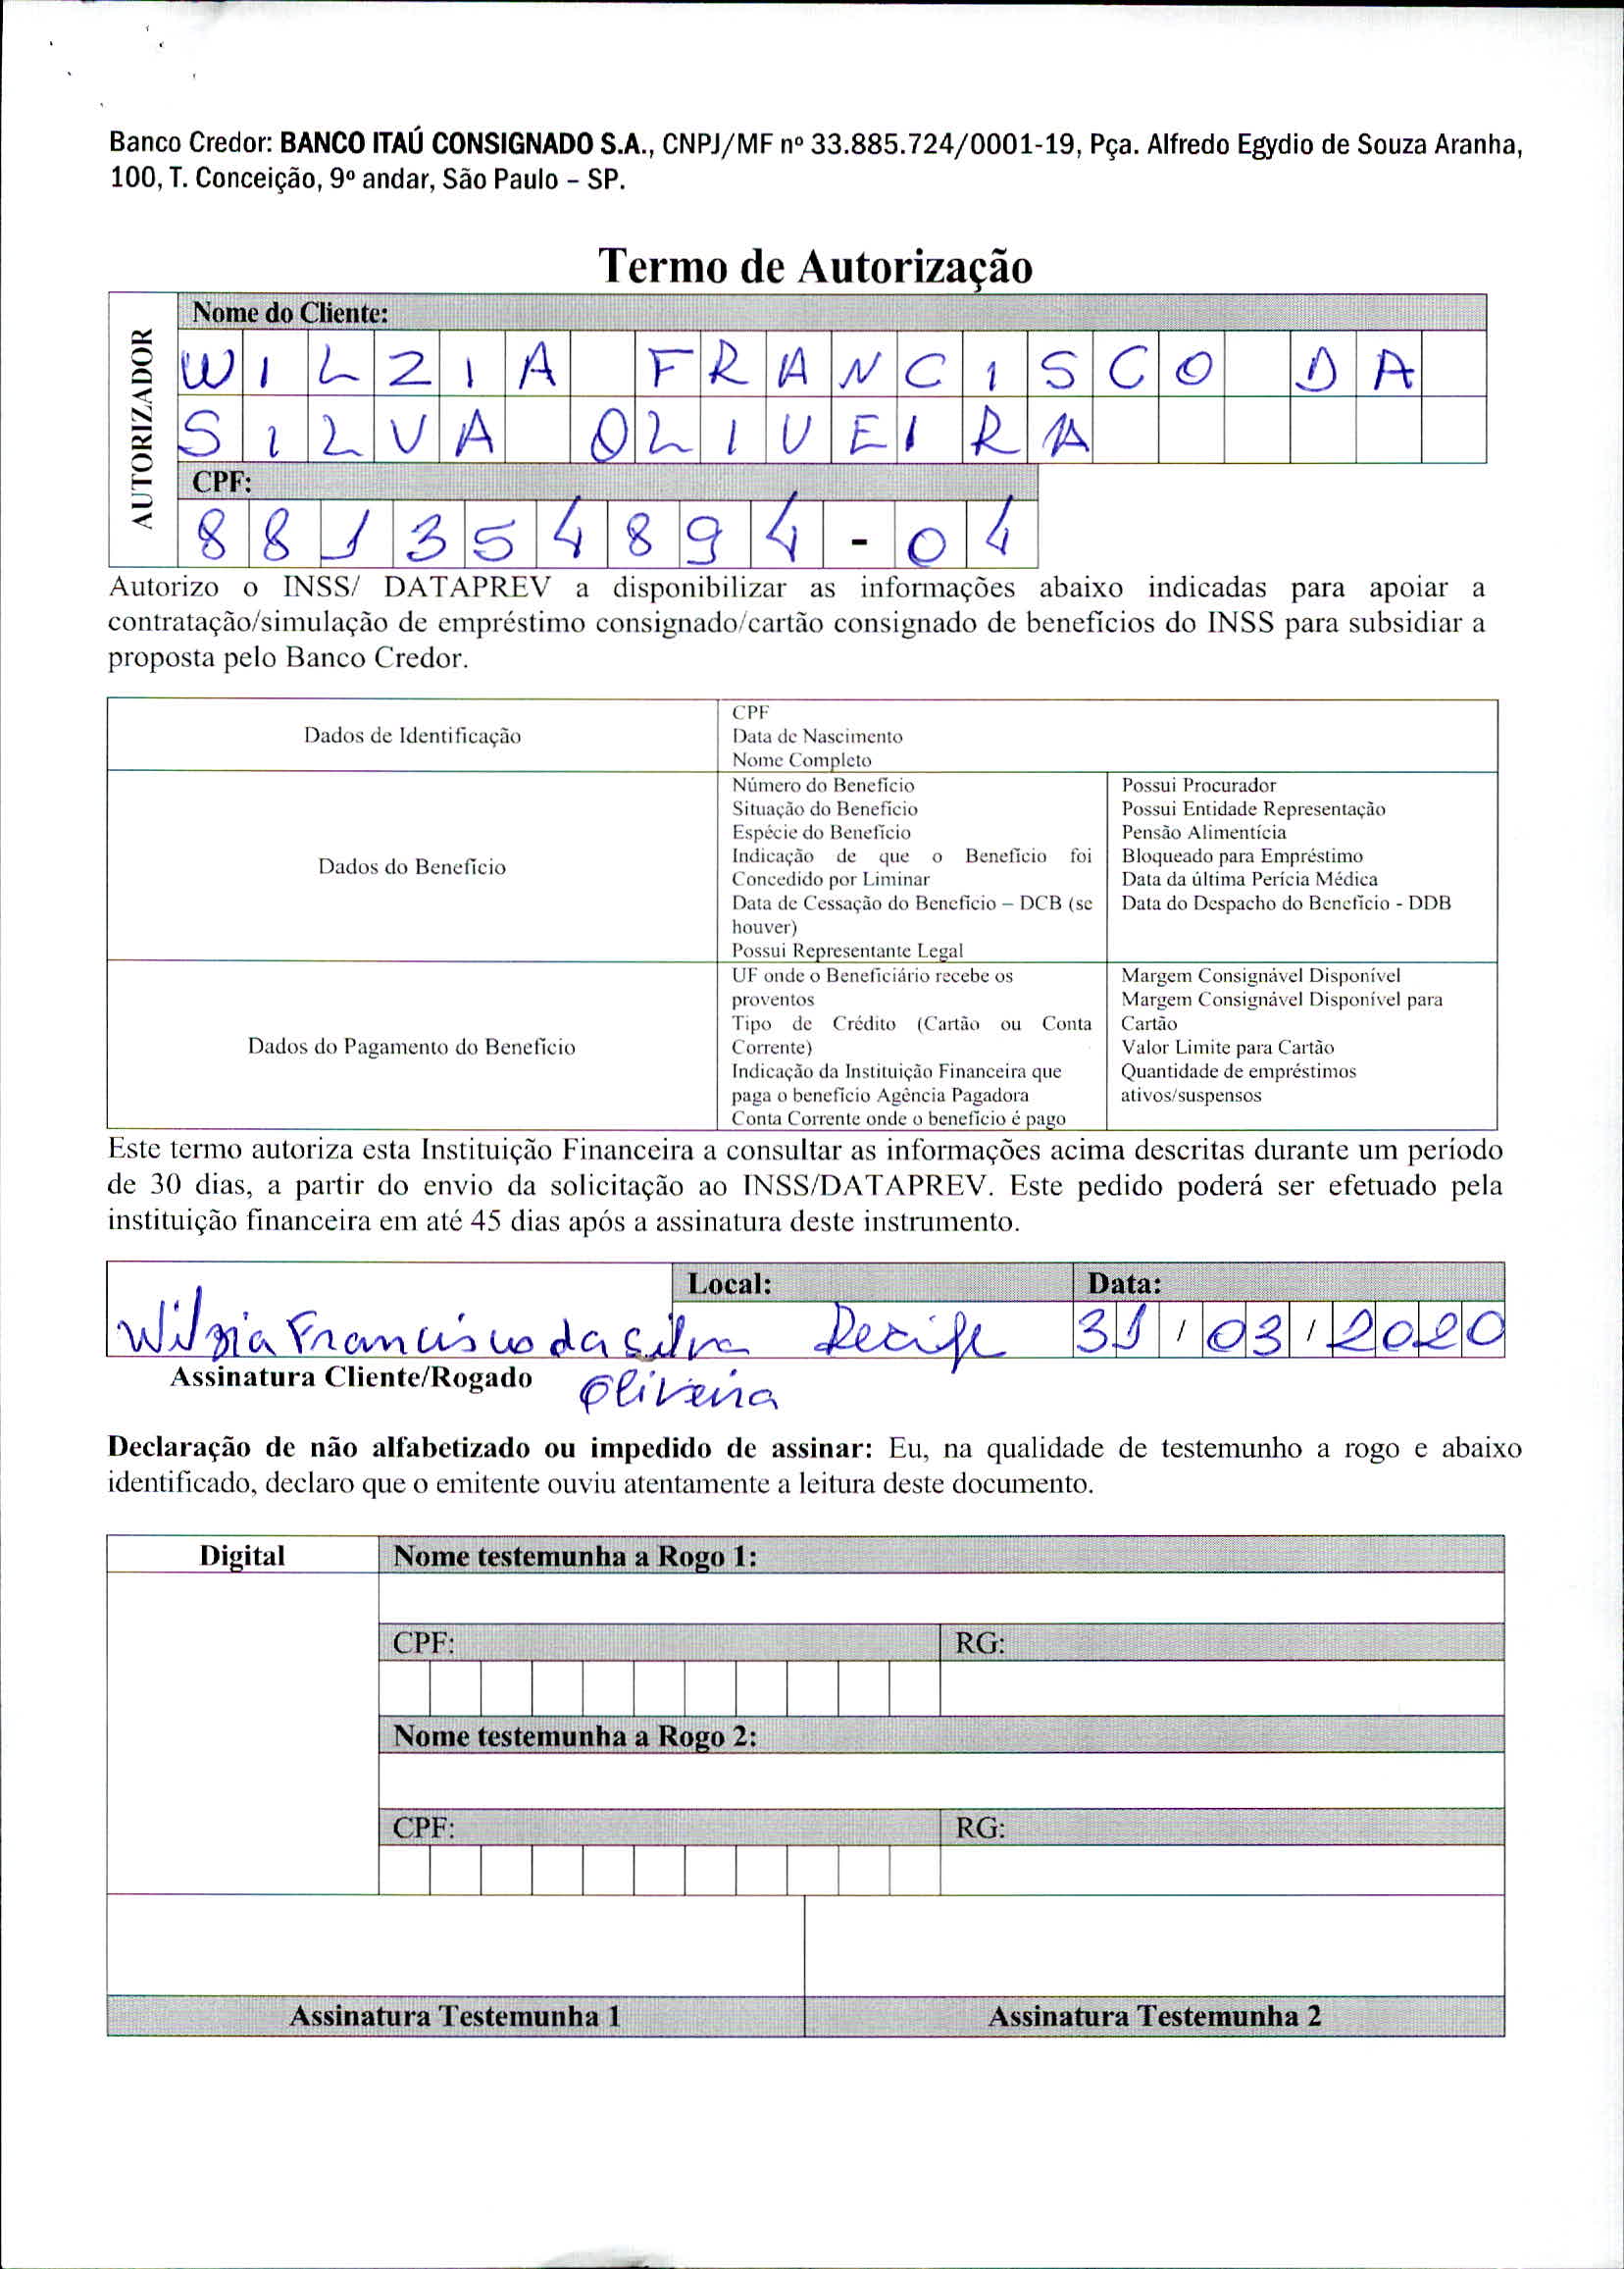 Banco Credor: BANCO ITAÚ CONSIGNADO S.A., CNPJ/MF nº 33.885.724/0001-19, Pça. Alfredo Egydio de Souza Aranha,
100, T. Conceição, 9º andar, São Paulo – SP.
Termo de Autorização
AUTORIZADOR
Nome do Cliente:
WILZIA FRANCISCO DA
SILVA OLIVEIRA
CPF:
881354894-04
Autorizo o INSS/ DATAPREV a disponibilizar as informações abaixo indicadas para apoiar a
contratação/simulação de empréstimo consignado/cartão consignado de benefícios do INSS para subsidiar a
proposta pelo Banco Credor.
Dados de Identificação
CPF
Data de Nascimento
Nome Completo
Dados do Benefício
Número do Benefício
Situação do Benefício
Espécie do Benefício
Indicação de que o Benefício foi
Concedido por Liminar
Data de Cessação do Benefício – DCB (se
houver)
Possui Representante Legal
Possui Procurador
Possui Entidade Representação
Pensão Alimentícia
Bloqueado para Empréstimo
Data da última Perícia Médica
Data do Despacho do Benefício - DDB
Dados do Pagamento do Benefício
UF onde o Beneficiário recebe os
proventos
Tipo de Crédito (Cartão ou Conta
Corrente)
Indicação da Instituição Financeira que
paga o benefício Agência Pagadora
Conta Corrente onde o benefício é pago
Margem Consignável Disponível
Margem Consignável Disponível para
Cartão
Valor Limite para Cartão
Quantidade de empréstimos
ativos/suspensos
Este termo autoriza esta Instituição Financeira a consultar as informações acima descritas durante um período
de 30 dias, a partir do envio da solicitação ao INSS/DATAPREV. Este pedido poderá ser efetuado pela
instituição financeira em até 45 dias após a assinatura deste instrumento.
Local: Data:
Wilzia Francisco da Silva Recife 31/03/2020
Assinatura Cliente/Rogado Oliveira
Declaração de não alfabetizado ou impedido de assinar: Eu, na qualidade de testemunho a rogo e abaixo
identificado, declaro que o emitente ouviu atentamente a leitura deste documento.
Digital
Nome testemunha a Rogo 1:
CPF: RG:
Nome testemunha a Rogo 2:
CPF: RG:
Assinatura Testemunha 1 Assinatura Testemunha 2